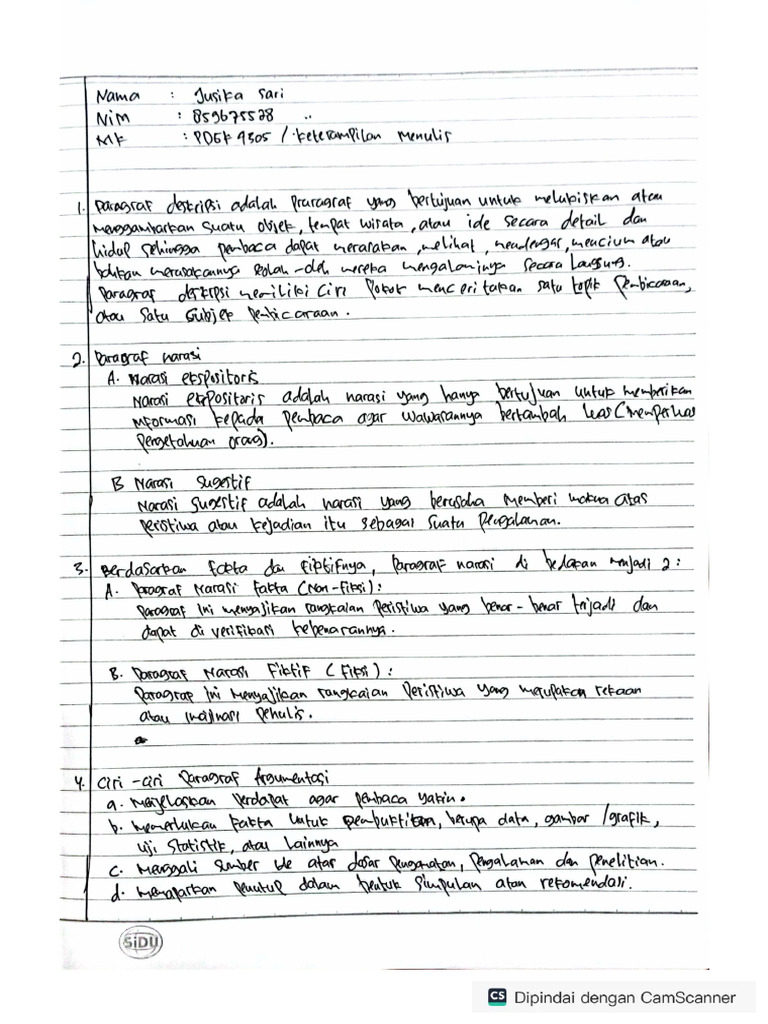 Nama : Jusika Sari
NIM : 859675528 ..
MK : PDGK 4305 / Keterampilan Menulis
1. Paragraf deskripsi adalah Praragraf yang bertujuan untuk melukiskan atau
Menggambarkan suatu objek, tempat wisata, atau ide secara detail dan
hidup sehingga pembaca dapat merasakan, melihat, mendengar, mencium atau
bahkan merasakannya seolah-olah mereka mengalaminya secara langsung.
Paragraf deskripsi memiliki ciri Pokok menceritakan satu topik Pembicaraan,
atau satu subjek Pembicaraan.
2. Paragraf narasi
A. Narasi ekspositoris
Narasi ekspositoris adalah narasi yang hanya bertujuan untuk memberikan
Informasi kepada Pembaca agar wawasannya bertambah luas (memperluas
Pengetahuan orang).
B Narasi Sugestif
Narasi Sugestif adalah narasi yang berusaha Memberi makna atas
Peristiwa atau kejadian itu sebagai suatu Pengalaman.
3. Berdasarkan fakta dan fiktifnya, Paragraf narasi di bedakan menjadi 2:
A. Paragraf Narasi Fakta (Non-Fiksi) :
Paragraf Ini menyajikan rangkaian Peristiwa yang benar-benar terjadi dan
dapat di verifikasi kebenarannya.
B. Paragraf Narasi Fiktif (Fiksi) :
Paragrap ini Menyajikan rangkaian Peristiwa yang merupakan rekaan
atau imajinasi Penulis.
4. Ciri-ciri Paragraf Argumentasi
a. Menjelaskan Pendapat agar Pembaca Yakin.
b. Memerlukan Fakta Untuk pembuktian, berupa data, gambar /grafik,
Uji Statistik, atau lainnya
c. Menggali sumber ide atas dasar Pengamatan, Pengalaman dan Penelitian.
d. Memaparkan Penutup dalam bentuk Simpulan atau rekomendasi.
SiDU
CS Dipindai dengan CamScanner